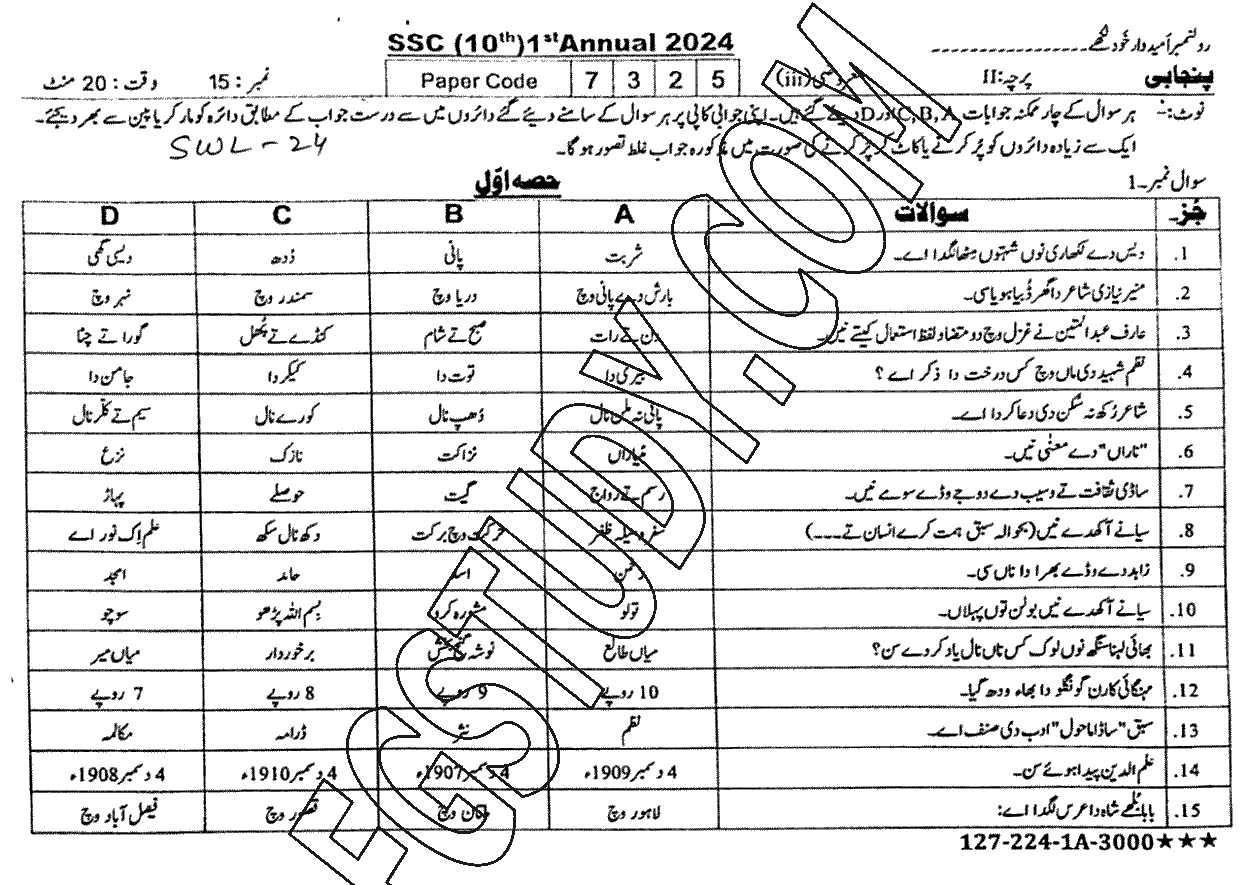 SSC (10th)1st Annual 2024
رولنمبر اُمیدوار خُود لکھے
پنجابی پرچہ:II (iii) Paper Code 7 3 2 5 نمبر: 15 وقت: 20 منٹ
نوٹ:- ہر سوال کے چار ممکنہ جوابات C,B,A اور D دیئے گئے ہیں۔ اپنی جوابی کاپی پر ہر سوال کے سامنے دیئے گئے دائروں میں سے درست جواب کے مطابق دائرہ کو مارکر یا پین سے بھر دیجئے۔
ایک سے زیادہ دائروں کو پُر کرنے یا کاٹ کر پُر کرنے کی صورت میں مذکورہ جواب غلط تصور ہو گا۔
SWL-24
حصہ اوّل
سوال نمبر۔1
جُز۔ سوالات A B C D
1. دیس دے لکھاری نوں شہتوں مِٹھا لگدا اے۔ شربت پانی دُدھ دیسی گھی
2. منیر نیازی شاعر دا گھر ڈُبیا ہویا سی۔ بارش دے پانی وچ دریا وچ سمندر وچ نہر وچ
3. عارف عبدالمتین نے غزل وچ دو متضاد لفظ استعمال کیتے نیں۔ دن تے رات صبح تے شام کنڈے تے پھُل گورا تے چٹا
4. نظم شہید دی ماں وچ کس درخت دا ذکر اے ؟ بیری دا توت دا کیکر دا جامن دا
5. شاعر رُکھ نہ سُکن دی دعا کردا اے۔ پانی نہ ملن نال دُھپ نال کورے نال سیم تے کلّر نال
6. "ناراں" دے معنٰی نیں۔ مُٹیاراں نزاکت نازک نزع
7. ساڈی ثقافت تے وسیب دے دوجے وڈے سوے نیں۔ رسم تے رواج گیت حوصلے پہاڑ
8. سیانے آکھدے نیں (بحوالہ سبق ہمت کرے انسان تے۔۔۔۔) سفر وسیلہ ظفر حرکت وچ برکت دکھ نال سکھ علم اِک نور اے
9. زاہد دے وڈے بھرا دا ناں سی۔ حامد امجد
10. سیانے آکھدے نیں بولن توں پہلاں۔ تولو مشورہ کرو بسم اللہ پڑھو سوچو
11. بھائی لہنا سنگھ نوں لوک کس ناں نال یاد کردے سن؟ میاں طالع نوشہ گنج بخش برخوردار میاں میر
12. مہنگائی کارن گونگلو دا بھاء ودھ گیا۔ 10 روپے 9 روپے 8 روپے 7 روپے
13. سبق "ساڈا ماحول" ادب دی صنف اے۔ نظم نثر ڈرامہ مکالمہ
14. علم الدین پیدا ہوئے سن۔ 4 دسمبر 1909ء 4 دسمبر 1907ء 4 دسمبر 1910ء 4 دسمبر 1908ء
15. بابا بلھے شاہ دا عرس لگدا اے: لاہور وچ ملتان وچ قصور وچ فیصل آباد وچ
127-224-1A-3000★★★
FGSTUDY.COM